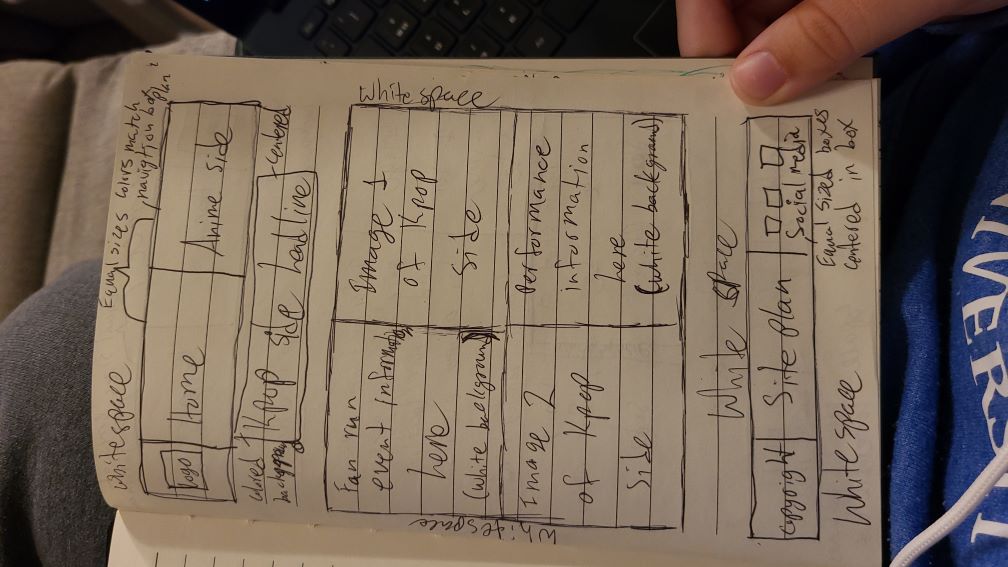 Whitespace
Equal sizes
Colors match
navigtion box
plan
logo
Home
Anime side
colored
background
Kpop side headline
centered
Fan run
event information
here
(white background)
Image 1
of Kpop
side
Whitespace
Whitespace
Image 2
of Kpop
side
Performance
information
here
(white background)
White space
copyright
Site plan
Social media
Equal Sized boxes
centered in box
White space
IVERSIT